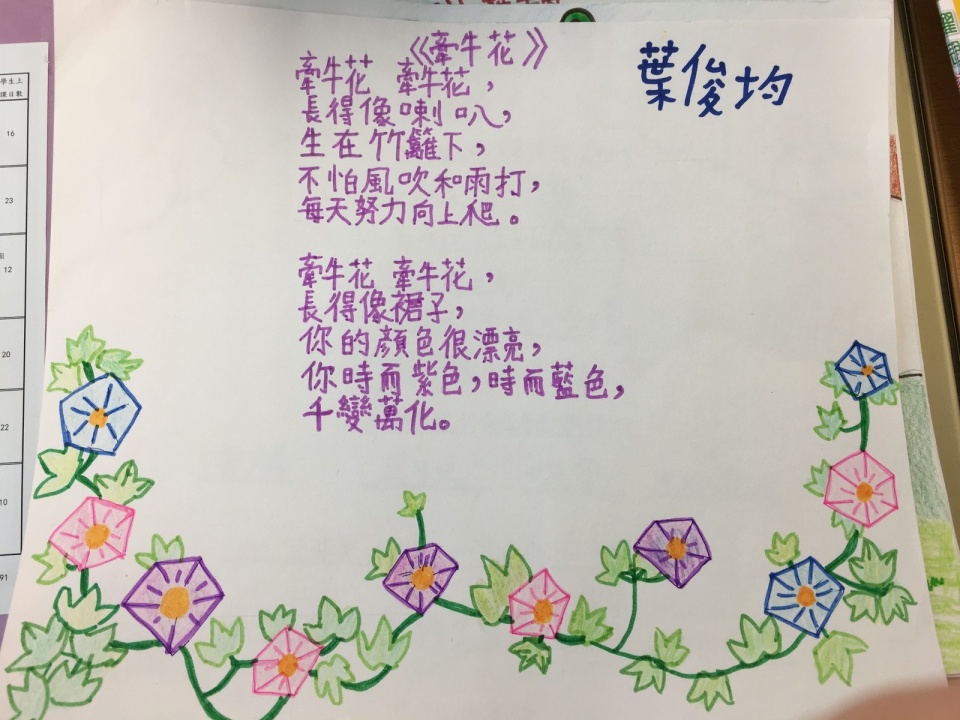 《牽牛花》
葉俊均
牽牛花 牽牛花，
長得像喇叭，
生在竹籬下，
不怕風吹和雨打，
每天努力向上爬。
牽牛花 牽牛花，
長得像裙子，
你的顏色很漂亮，
你時而紫色，時而藍色，
千變萬化。
學生上
課日數
16
23
12
20
22
10
91